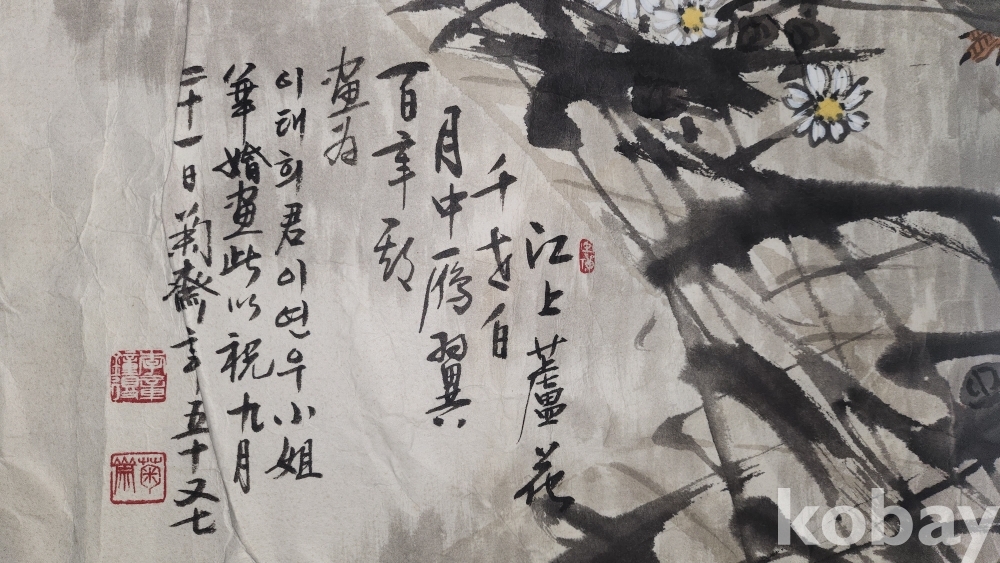 江上蘆花
千白
月中鴈翼
百年
畫為
이태희君이연우小姐
華婚畫此以祝九月
二十一日菊齋年五十又七
kobay